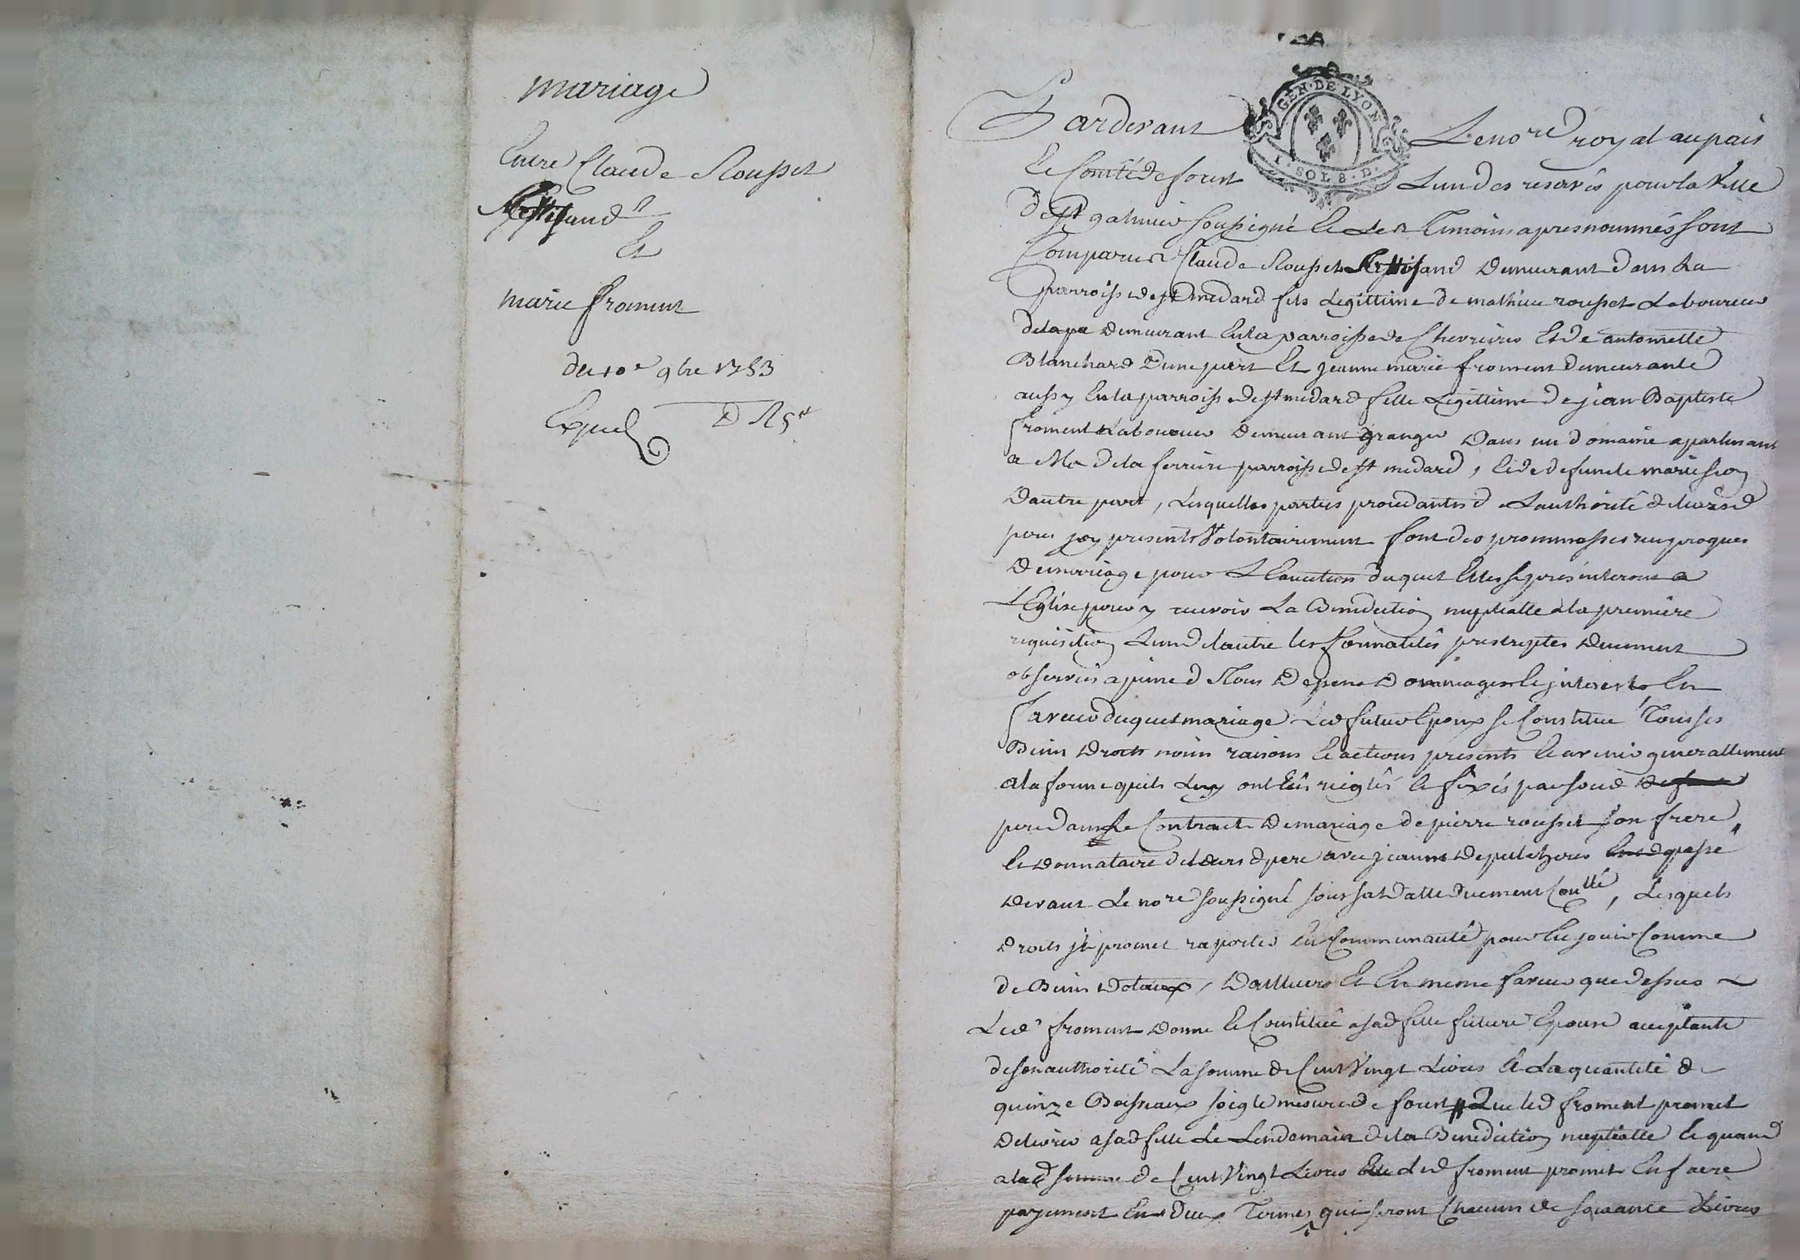 mariage
Entre Claude Rousset
Et
marie froment
du 10e 9bre 1753
Expед
GEN. DE LYON
1. SOL 8. D.
Pardevant Le nore royal au pais
Et Comté de forest Lun des reservés pour la Ville
de St galmier soussigné Et Les Temoins apres nommés sont
Comparus Claude Rousset demeurant dans La
parroisse de St medard fils Legittime de mathieu rousset Laboureur
demeurant En la parroisse de Chevrieres Et de antoinette
Blanchard d'une part Et jeanne marie froment demeurante
aussy En la parroisse de St medard fille Legittime de jean Baptiste
froment Laboureur demeurant granger dans un domaine apartenant
a Mr de la ferriere parroisse de St medard, Et de defuncte marie
dautre part, Lesquelles parties procedantes de Lauthorité de leursd
peres jcy presents Volontairement font des prommesses reciproques
de mariage pour L'Execution duquel Elles se presenteront a
L'Eglise pour y recevoir La Benediction nuptialle a la premiere
requisition Lun de lautre les formalités prescriptes duement
observées a peine de Tous depens dommages Et jnterests En
faveur duquel mariage Led futur Epoux se Constitue Tous ses
Biens droits noms raisons Et actions presents Et avenir generallement
a la forme quils Luy ont Etés reiglés Et fixés par sond
pere dans Le Contract de mariage de pierre rousset son frere
Et donnataire de leurd pere avec jeanne passé
devant Le nore soussigné sous sa datte duement Conllé, Lesquels
droits jl promet raporter En Communauté pour En jouir Comme
de Biens dotaux, dailleurs Et En meme faveur que dessus
Led froment donne Et Constitue a sad fille future Epouse acceptante
de son authorité La somme de Cent Vingt Livres Et La quantité de
quinze Boisseaux soigle mesure de forest Que led froment promet
delivrer a sad fille Le Lendemain de la Benediction nuptialle Et quand
a lad somme de Cent Vingt Livres Led froment promet En faire
payement En deux Termes qui seront Chacun de soixante Livres